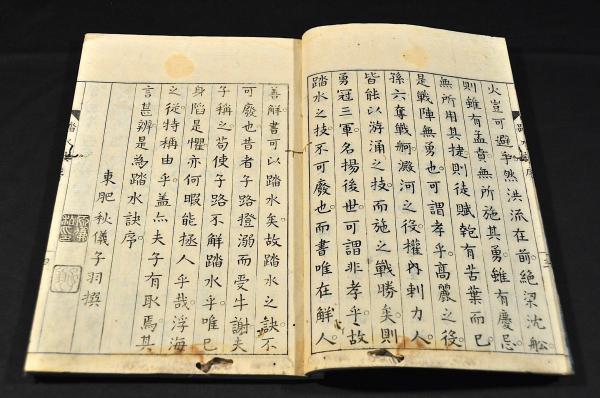 火豈可避乎。然洪流在前。絕梁沈船。
則雖有孟賁無所施其勇。雖有慶忌。
無所用其捷。則徒賦匏有苦葉而已。
是戰陣無勇也。可謂孝乎。高麗之役。
孫六奪戰舸。澱河之役。權內刺力人。
皆能以游涌之技。而施之戰勝矣。則
勇冠三軍。名揚後世。可謂非孝乎。故
踏水之技。不可廢也。而書唯在解人。
善解書可以踏水矣。故踏水之訣。不
可廢也。昔者子路拯溺而受牛。謝夫
子稱之。苟使子路不解踏水乎。唯己
身陷是懼。亦何暇能拯人乎哉。浮海
之從。特稱由乎。蓋夫子有取焉。其
言甚辨。是為踏水訣序。
東肥秋儀子羽撰